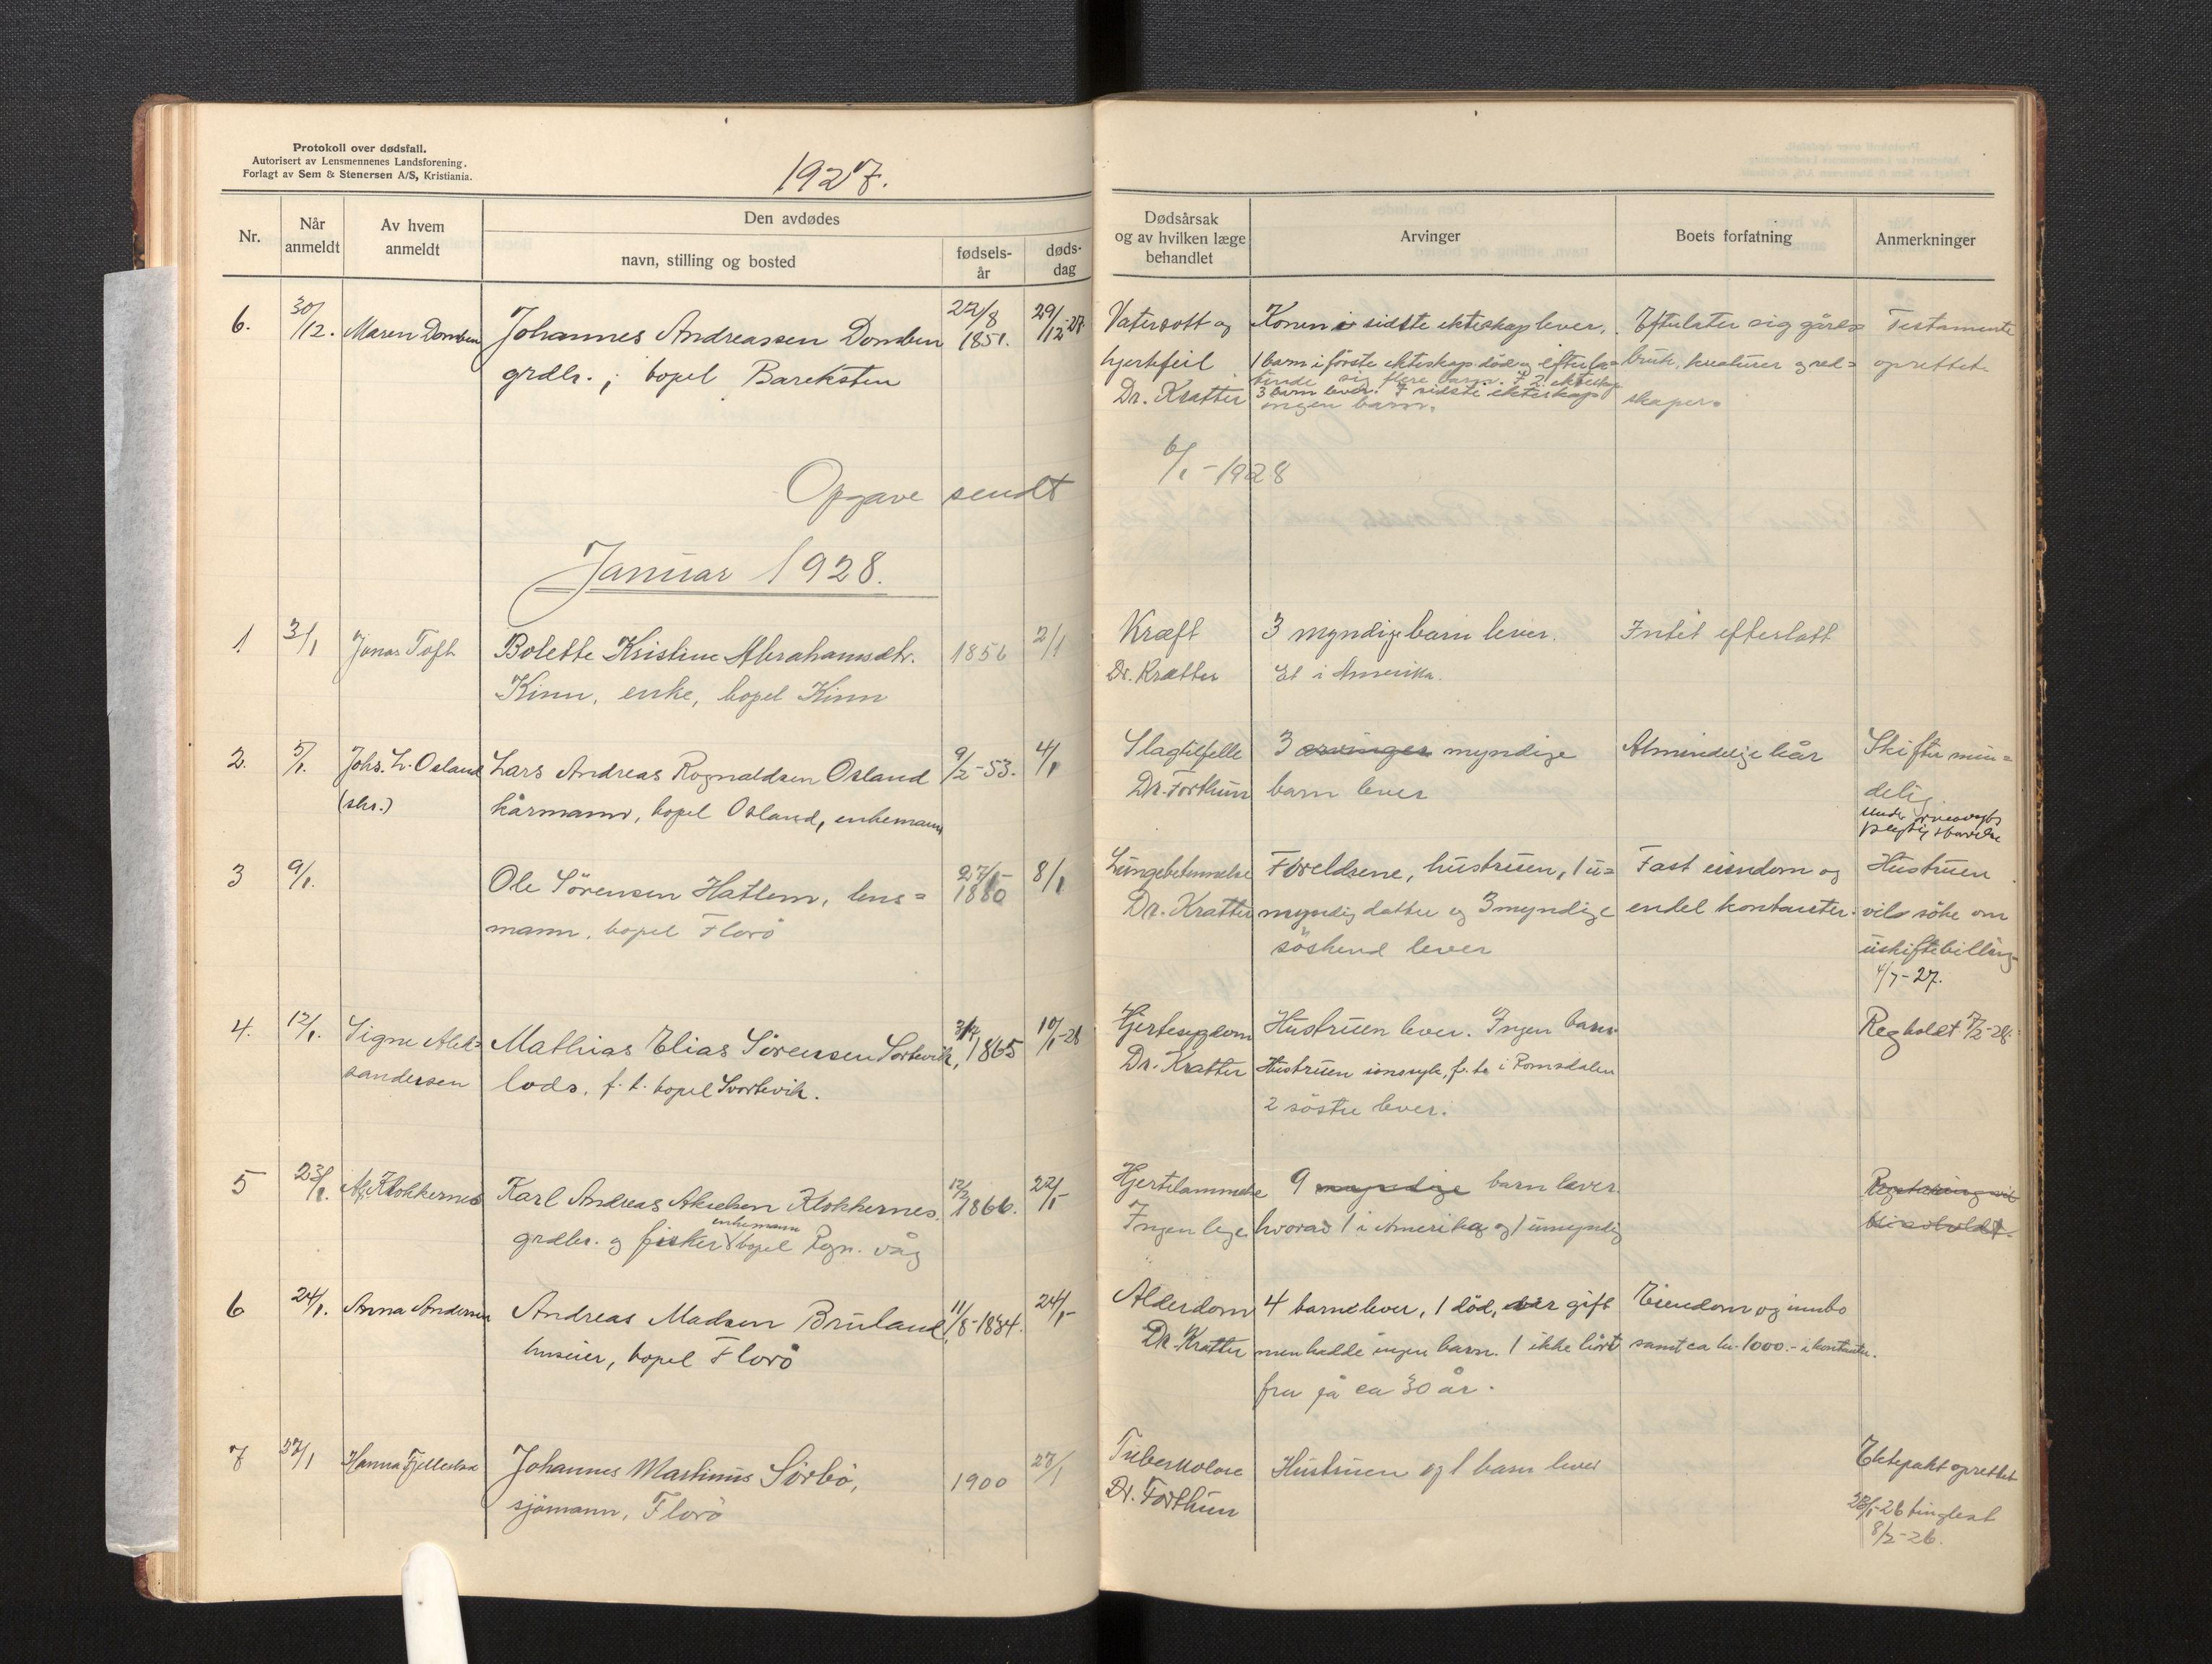 Protokoll over dødsfall.
Autorisert av Lensmennenes Landsforening.
Forlagt av Sem & Stenersen A/S, Kristiania.
1927.
Nr.
Når anmeldt
Av hvem anmeldt
Den avdødes
navn, stilling og bosted
fødsels-
år
døds-
dag
Dødsårsak
og av hvilken læge
behandlet
Arvinger
Boets forfatning
Anmerkninger
6. 30/12. Maren Domben Johannes Andreassen Domben 22/8 1851. 29/12-27
grdbr. ; bopel Bareksten
Vatersott og
hjertefeil
Dr. Kratter
Konen i sidste ekteskap lever.
1 barn i første ekteskap død og efterla=
tende sig flere barn. I 2 ekteskap
3 barn lever. I sidste ekteskap
ingen barn.
Efterlater sig gårds=
bruk, kreaturer og red=
skaper.
Testamente
oprettet.
Opgave sendt 6/1-1928
Januar 1928.
1 3/1 Jonas Toft Bolette Kristine Abrahamsdtr. 1856 2/1
Kinn, enke, bopel Kinn
Kræft
Dr. Krætter
3 myndige barn lever.
Et i Amerika.
Intet efterlatt
2. 5/1. Johs. L. Osland Lars Andreas Rognaldsen Osland 9/2-53. 4/1
kårmann, bopel Osland, enkemann
Slagtilfelle
Dr. Forthun
3 arvinger myndige
barn lever
Almindelige kår
Skifter min=
delig
under
3 9/1. Ole Sörensen Hatlem, lens= 27/1- 1880 8/1
mann, bopel Florö
Lungebetennelse
Dr. Kratter
Foreldrene, hustruen, 1 u=
myndig datter og 3 myndige
söskend lever
Fast eiendom og
endel kontanter.
Hustruen
vil söke om
uskiftebevilling
4/7-27.
4. 12/1. Signe Alek=
sandersen
Mathias Elias Sörensen Sortevik, 1865 10/1-28
lods, f. t. bopel Svortevik.
Hjertesygdom
Dr. Kratter
Hustruen lever. Ingen barn.
Hustruen sinnsyk, f. t. i Romsdalen
2 söstre lever.
Reg holdt 7/2-28.
5 23/1. Klokkernes Karl Andreas Akselsen Klokkernes. 12/2 1866. 22/1-
enkemann
grdbr. og fisker bopel Rgn. våg
Hjertelammelse
Ingen lege
9 myndige barn lever.
hvorav 1 i Amerika og 1 umyndig
Registrering vil
bli avholdt.
6 24/1. Anna Andersen Andreas Madsen Bruland, 11/8-1834. 24/1-
huseier, bopel Florö
Alderdom
Dr. Kratter
4 barn lever, 1 död, var gift
men hadde ingen barn. 1 ikke hört
fra på ca 30 år.
Eiendom og innbo
samt ca kr. 1000.- i kontanter.
7 27/1 Hanna Johannes Martinus Sörbö, 1900 27/1
sjömann, Florö
Tuberkulose
Dr. Forthun
Hustruen og 1 barn lever
Ektepakt oprettet
28/1-26 tinglest
8/2-26.